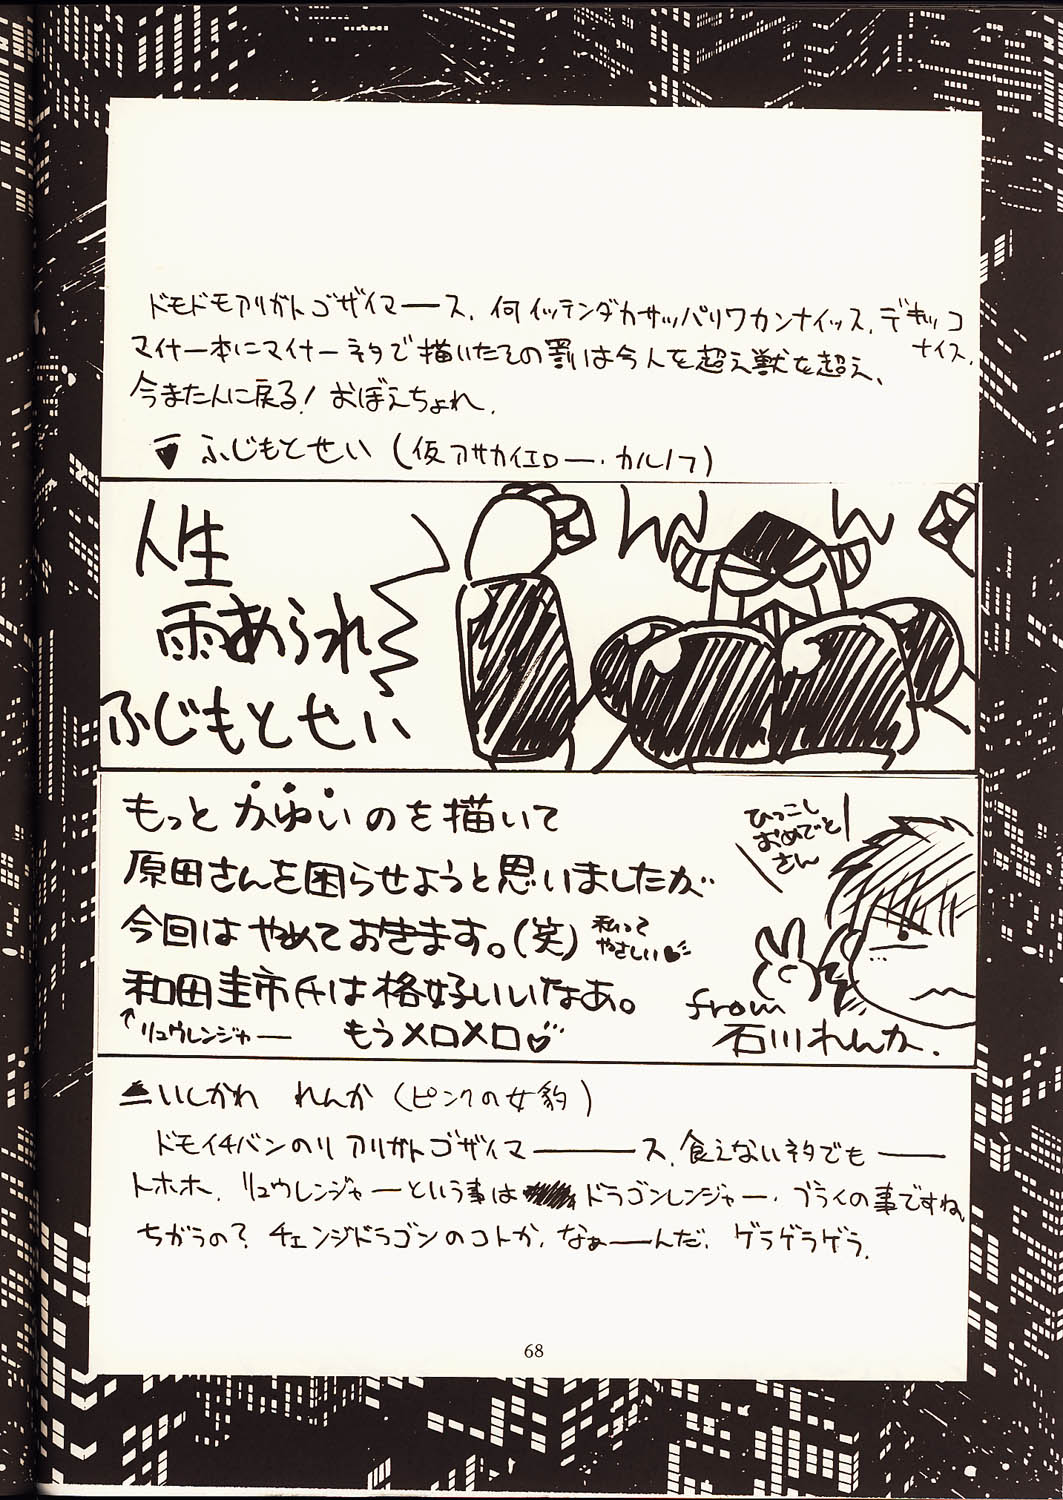 ドモドモアリガトゴザイマース。何イッテンダカサッパリワカンナイッス。デキッコ
ナイス。
マイナー本にマイナーネタで描いたその罰は今人を超え獣を超え、
今また人に戻る! おぼえちょれ。
ふじもとせい (仮アサカイエロー・カルノフ)
人生
雨あられ
ふじもとせい
もっと かゆい のを描いて
原田さんを困らせようと思いましたが
今回はやめておきます。(笑) 私って
やさしい♥
和田圭市氏は格好いいなあ。
↑リュウレンジャー もうメロメロ♡
ひっこし
おめでと
さん
from
石川れんか.
いしかわ れんか (ピンクの女豹)
ドモイチバンのリ アリガトゴザイマーーース。食えないネタでもー
トホホ。リュウレンジャーという事は ドラゴンレンジャー・ブライの事ですね。
ちがうの? チェンジドラゴンのコトか。なぁーんだ。ゲラゲラゲラ。
68